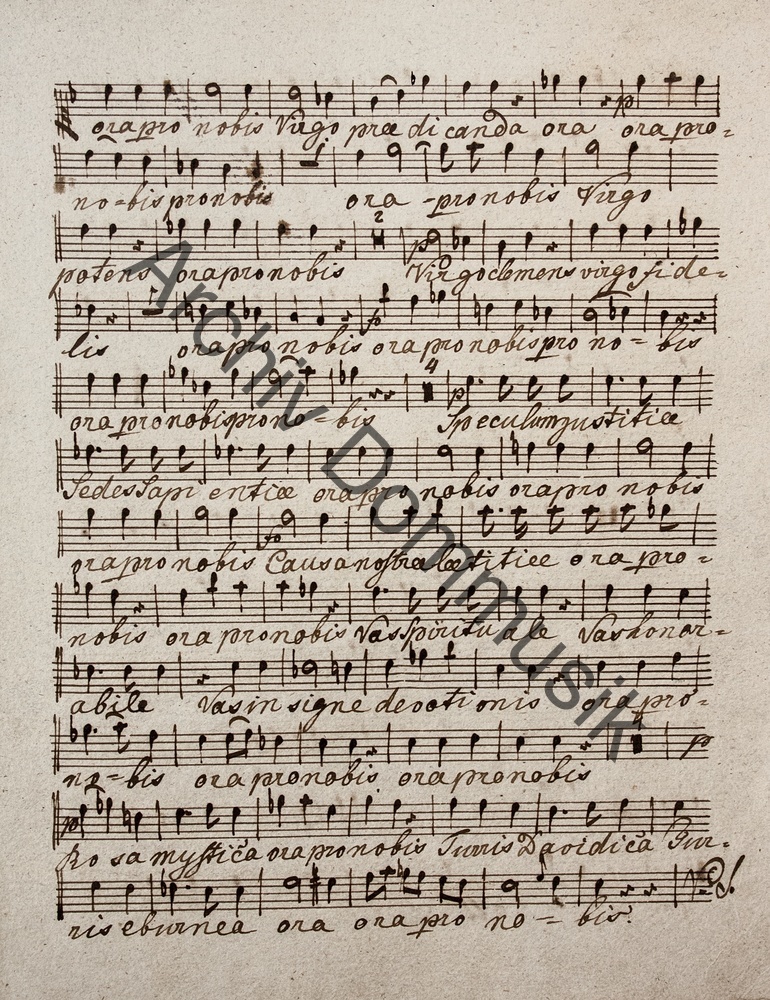 ora pro nobis Virgo præ di canda ora ora pro=
no=bis pro nobis ora -pro nobis Virgo
2
potens ora pro nobis Virgo clemens virgo fi de=
lis ora pro nobis ora pro nobis pro no= bis
4
ora pro nobis pro no=bis Speculum justitiæ
Sedes Sapi entiæ ora pro nobis ora pro nobis
ora pro nobis Causa nostræ lætitiæ ora pro=
nobis ora pro nobis Vas Spiritu ale Vas honor=
abile Vas in signe devotionis ora pro=
no=bis ora pro nobis ora pro nobis
Ro sa mystica ora pro nobis Turris Davidica Tur=
ris eburnea ora ora pro no= bis.
Archiv Dommusik